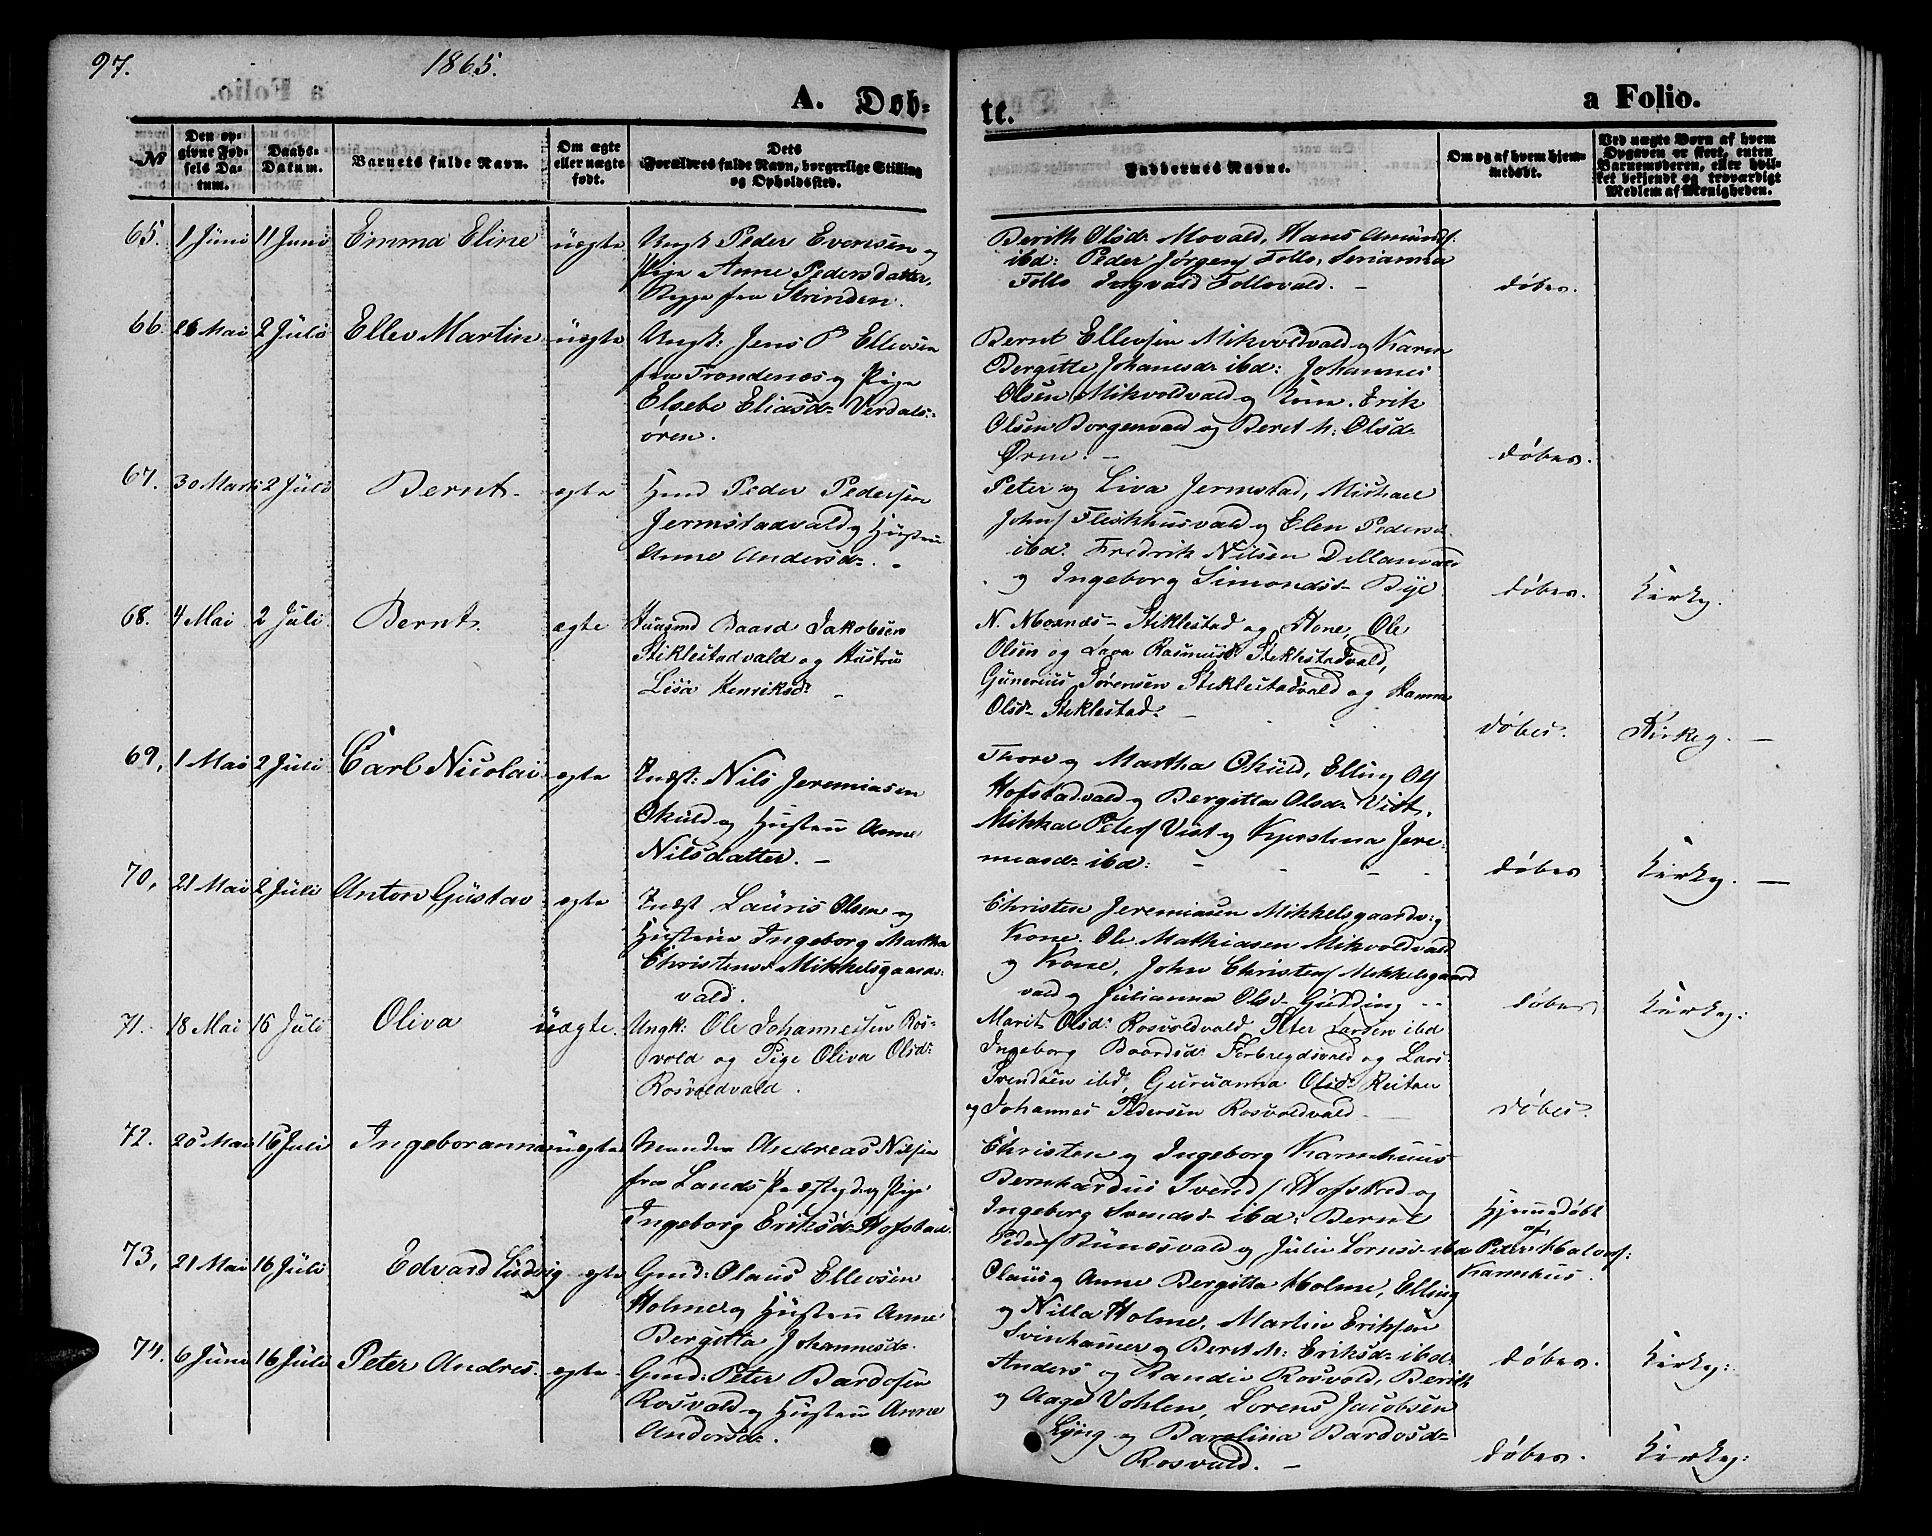 97.
1865.
A. Døb-
te.
a Folio.
No
Den op-
givne Fød-
sels Da-
tum.
Daabs-
Datum.
Barnets fulde Navn.
Om ægte
eller uægte
født.
Dets
Forældres fulde Navn, borgerlige Stilling
og Opholdssted.
Faddernes Navne.
Om og af hvem hjem-
medøbt.
Ved uægte Børn af hvem
Opgaven er skeet, enten
Barnemoderen, eller hvil-
ket bekjendt og troværdigt
Medlem af Menigheden.
65. 1 Juni 11 Juni Emma Eline uægte
Ungk Peder Evensen og
Pige Anne Pedersdatter,
Begge fra Strinden.
Berith Olsd: Movald, Hans Amunds:
ibd: Peder Jørgens Follo, Serianna
Follo Ingvald Follovald. –
døbes.
66. 26 Mai 2 Juli Ellev Martin uægte
Ungk: Jens P Ellevsen
fra Trondenes og Pige
Elsebe Eliasd: Verdals-
øren.
Bernt Ellevsen Mikvoldvald og Karen
Bergitte Johanesd: ibd: Johannes
Olsen Mikvoldvald og Kone. Erik
Olsen Borgenvald og Beret M: Olsd:
Ørm. –
døbes.
67. 30 Marts 2 Juli Bernt. ægte
Hmd Peder Pedersen
Jermstadvald og Hustru
Anne Andersd:. –
Peter og Liva Jermstad, Michael
Johns Fleskhusvald og Elen Peders
ibd. Fredrik Nilsen Dillanvald
og Ingeborg Simondsd: Bye
døbes. Kirkg.
68. 4 Mai 2 Juli Bernt. ægte
Huusmd Baard Jakobsen
Stiklestadvald og Hustru
Lisa Henriksd: –
N. Moxnes – Stiklestad og Kone, Ole
Olsen og Lava Rasmusd: Stiklestadvald,
Gunerius Sørensen Stiklestadvald og Hanna
Olsd: Stiklestad. –
døbes. Kirkeg. –
69, 1 Mai 2 Juli Carl Nicolai ægte
Indst: Nils Jeremiasen
Okuld og Hustru Anne
Nilsdatter. –
Thore og Martha Okuld, Elling Ols
Hofstadvald og Bergitta Olsd: Vist,
Mikkal Peters Vist og Kjerstina Jere-
miasd: ibd:
døbes Kirkg. –
70, 21 Mai 2 Juli Anton Gustav ægte
Indst Lauris Olsen og
Hustru Ingeborg Martha
Christensd: Mikkelsgaards-
vald.
Christen Jeremiasen Mikkelsgaardv: og
Kone. Ole Mathiasen Mikvoldvald
og Kone, John Christens Mikkelsgaard
vald og Julianna Olsd: Gudding
døbes Kirkg:
71. 18 Mai 16 Juli Oliva uægte.
Ungk: Ole Johannessen Ros-
vold og Pige Oliva Olsd:
Rosvoldvald.
Marit Olsd: Rosvoldvald Peter Larsen ibd
Ingeborg Baardsd: Forbregdsvald og Lars
Svendsen ibd, Guruanna Olsd: Reitan
og Johannes Pedersen Rosvoldvald
døbes.
72. 20 Mai 16 Juli Ingeboranna uægte
Andreas Nilsen
fra Lands Præstegd og Pige
Ingeborg Eriksd: Hofstad.
Christen og Ingeborg Karmhuus
Bernhardus Svends Hofstad og
Ingeborg Svendsd: ibd: Bernt
Peders Bunesvald og Julie Lornsd: ibd
Hjemmedøbt
af
Peter Halvors:
Karmhus.
73, 21 Mai 16 Juli Edvard Ludvig ægte
Gmd: Olaus Ellevsen
Holme og Hustru Anne
Bergitta Johannesd:.
Olaus og Anne Bergitta Holme, Elling
og Nilla Holme, Martin Eriksen
Svinhamer og Beret M: Eriksd: ibd:
døbes. Kirkg:
74. 6 Juni 16 Juli Peter Andres. ægte
Gmd: Peter Bardosen
Rosvald og Hustru Anne
Andersd:.
Anders og Randie Rosvold, Berith
og Aage Vohlen, Lorens Jacobsen
Lyng og Barolina Bardosd:
Rosvald. –
døbes. Kirkg: